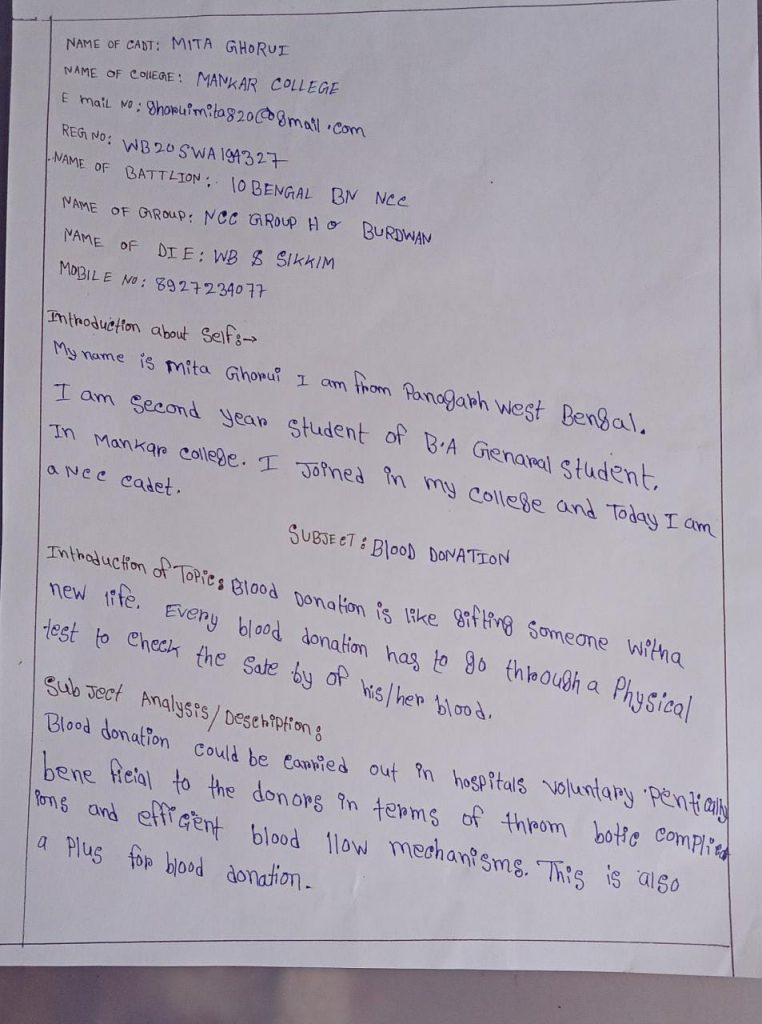 NAME OF CADT: MITA GHORUI
NAME OF COllEGE: MANKAR COLLEGE
E mail NO: ghoruimita820@gmail.com
REG NO: WB20SWA194327
NAME OF BATTLION: 10 BENGAL BN NCC
NAME OF GROUP: NCC GROUP H Q BURDWAN
NAME OF DIE: WB & SIKKIM
MOBILE No: 8927234077
Introduction about Self:→
My name is mita Ghorui I am from Panagarh West Bengal.
I am Second year student of B.A Genaral student.
In Mankar college. I Joined in my college and Today I am
a Ncc cadet.
SUBJECT: BlooD DONATION
Introduction of Topic: Blood Donation is like gifting Someone with a
new life. Every blood donation has to go through a Physical
test to check the Sate by of his/her blood.
Sub Ject Analysis/Description:
Blood donation could be carried out in hospitals voluntary
bene ficial to the donors in terms of throm botic complicat
ions and efficent blood llow mechanisms. This is also
a Plus for blood donation.